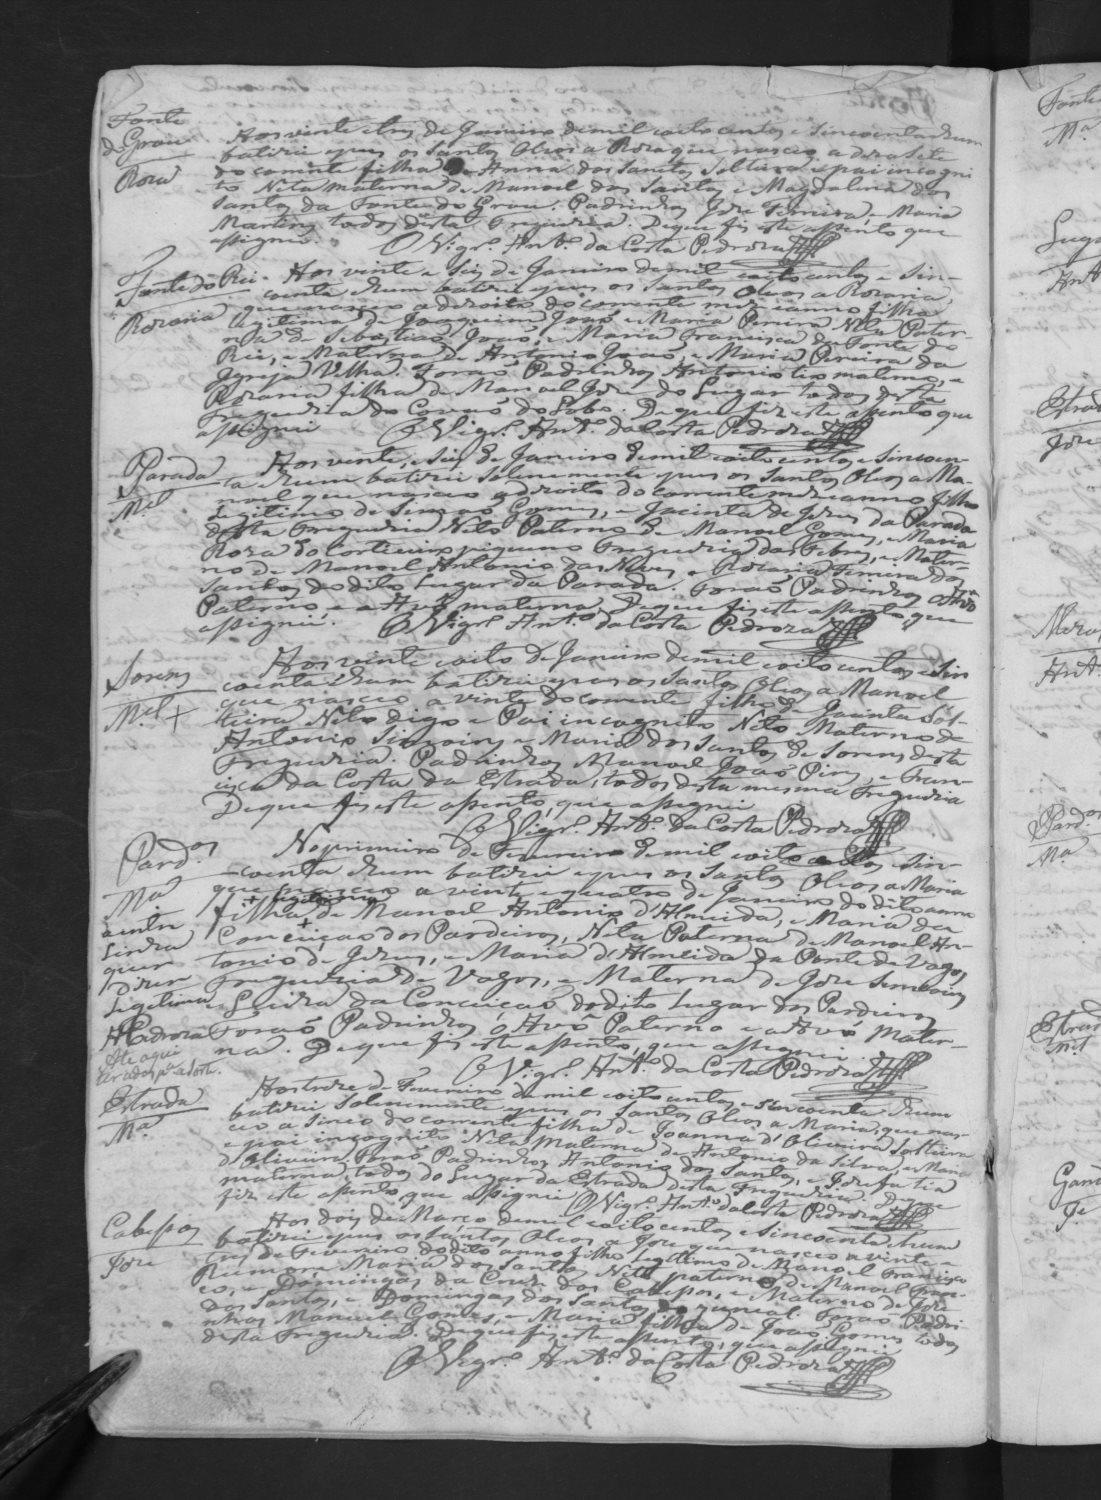 Fonte
do Grou
Roza
Aos vinte e tres de Janeiro de mil oito centos e sincoenta e hum
batizei e pus os Santos Oleos a Roza que nasceo a dezasete
do corrente filha de Anna dos Santos Solteira e pai incogni
to Neta materna de Manoel dos Santos e Magdalena dos
Santos da Fonte do Grou. Padrinhos Joze Ferreira e Maria
Martins todos desta Freguezia. De que fis este assento que
assignei. O Vigr.º Ant.º da Costa Pedroza
Fonte do Rei
Rozaria
Aos vinte e seis de Janeiro de mil oito centos e sin-
coenta e hum batizei e pus os Santos Oleos a Rozaria
que nasceo a dezoito do corrente mez e anno filha
legitima de Joaquim João e Maria Pereira Neta Pater-
na de Sebastião João, e Maria Francisca da Fonte do
Rei, e Materna de Antonio João, e Maria Pereira da
Igreja Velha. Forão Padrinhos Antonio tio materno, e
Rozaria filha de Manoel Joze do Lugar todos desta
Freguezia do Covão do Lobo. De que fiz este assento que
assignei O Vigr.º Ant.º da Costa Pedroza
Parada
M.el
Aos vinte, e seis de Janeiro de mil oito centos e sincoen-
ta e hum batizei solenemente e pus os Santos Oleos a Ma-
noel que nasceo a dezoito do corrente mez e anno filho
legitimo de Simão Gomes, e Jacinta de Jezus da Parada
desta Freguezia Neto Paterno de Manoel Gomes, e Maria
Roza do Corticeiro pequeno Freguezia das Febres, e Mater-
no de Manoel Antonio das Neves e Rozaria Ferreira dos
Santos do dito Lugar da Parada. Forão Padrinhos o Avô
Paterno e a Avó materna. De que fis este assento que
assignei. O Vigr.º Ant.º da Costa Pedroza
Sorens
M.el +
Aos vinte oito de Janeiro de mil oito centos e sin
coenta e hum batizei e pus os Santos Oleos a Manoel
que nasceo a vinte do corrente filho de Jacinta Sol-
teira Neto digo e Pai incognito Neto Materno de
Antonio Simoins e Maria dos Santos de Sorens desta
Freguezia. Padrinhos Manoel João Pires, e Fran-
cisca da Costa da Estrada, todos desta mesma Freguezia
De que fis este assento, que assignei
O Vigr.º Ant.º da Costa Pedroza
Pard.os
M.a
No primeiro de Fevereiro de mil oito centos e sin-
coenta e hum batizei e pus os Santos Oleos a Maria
que nasceo a vinte e quatro de Janeiro do dito anno
legitima
filha de Manoel Antonio d'Almeida, e Maria da
Conceiçao dos Pardieiros, Neta Paterna de Manoel An-
tonio de Jezus, e Maria d'Almeida da Ponte de Vagos
Freguezia de Vagos, e Materna de Joze Simoins
e Luiza da Conceição do dito Lugar dos Pardieiros
Forão Padrinhos o Avô Paterno e a Avó Mater-
na. De que fis este assento, que assignei.
O Vigr.º Ant.º da Costa Pedroza
a entre
linha
quer
dizer
Legitima
Pedroza
Ate aqui
Estrada
M.a
Aos treze de Fevereiro de mil oito centos, e sincoenta e hum
batizei solenemente e pus os Santos Oleos a Maria, que nas-
ceo a sinco do corrente filha de Joanna d'Oliveira Solteira
e pai incognito Neta Materna de Antonio da Silva, e Maria
d'Oliveira. Forão Padrinhos Antonio dos Santos, e Jozefa tia
materna, todos do Lugar da Estrada desta Freguezia. De que
fiz este assento, que assignei O Vigr.º Ant.º da Costa Pedroza
Cabeços
Joze
Aos dois de Março de mil oito centos, e sincoenta e hum
batizei e pus os Santos Oleos a Joze que nasceo a vinte e
tres de Fevereiro do dito anno filho legitimo de Manoel Francis-
co, e Maria dos Santos, Neto paterno de Manoel Fran-
co, e Domingas da Cruz dos Cabeços, e Materno de Joze
dos Santos, e Domingas dos Santos. Forão Padri-
nhos Manuel Gomes, e Maria filha de João Gomes todos
desta Freguezia. De que fis este assento, que assignei
O Vigr.º Ant.º da Costa Pedroza